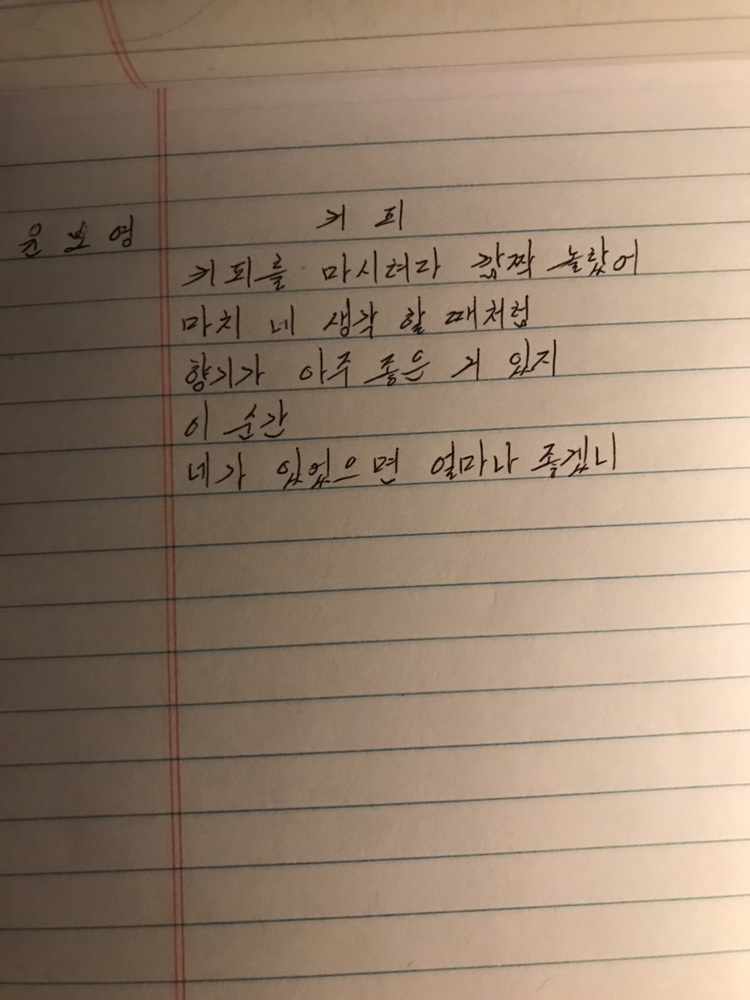 커 피
윤 보 영
커피를 마시려라 깜짝 놀랐어
마치 네 생각 할 때처럼
향기가 아주 좋은 거 있지
이 순간
네가 있었으면 얼마나 좋겠니